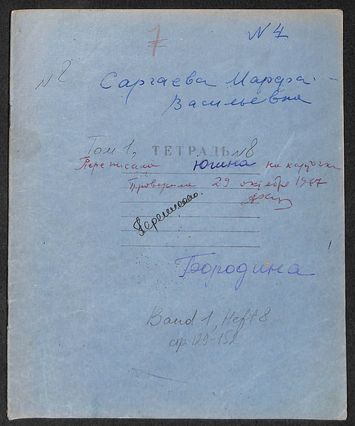 7
N 4
N 2
Саргаева Марфа
Васильевна
Том 1. ТЕТРАДЬ N8
Переписала Югина на карточки
Проверила 29 октября 1967
Переписано
Бородина
Band 1, Heft 8
стр 129-152